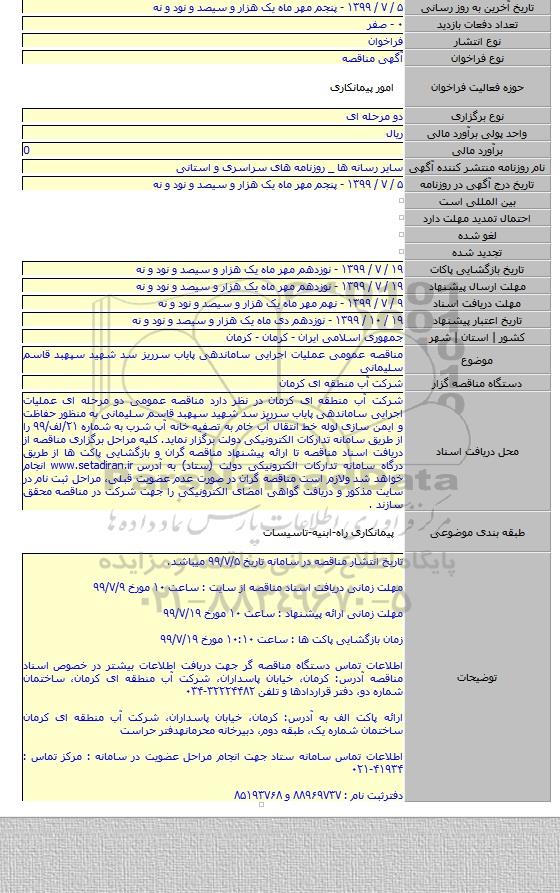 تاریخ آخرین به روز رسانی
۵ / ۷ / ۱۳۹۹ - پنجم مهر ماه یک هزار و سیصد و نود و نه
تعداد دفعات بازدید
۰ - صفر
نوع انتشار
فراخوان
نوع فراخوان
آگهی مناقصه
حوزه فعالیت فراخوان
امور پیمانکاری
نوع برگزاری
دو مرحله ای
واحد پولی برآورد مالی
ریال
برآورد مالی
0
نام روزنامه منتشر کننده آگهی
سایر رسانه ها _ روزنامه های سراسری و استانی
تاریخ درج آگهی در روزنامه
۵ / ۷ / ۱۳۹۹ - پنجم مهر ماه یک هزار و سیصد و نود و نه
بین المللی است
احتمال تمدید مهلت دارد
لغو شده
تجدید شده
تاریخ بازگشایی پاکات
۱۹ / ۷ / ۱۳۹۹ - نوزدهم مهر ماه یک هزار و سیصد و نود و نه
مهلت ارسال پیشنهاد
۱۹ / ۷ / ۱۳۹۹ - نوزدهم مهر ماه یک هزار و سیصد و نود و نه
مهلت دریافت اسناد
۹ / ۷ / ۱۳۹۹ - نهم مهر ماه یک هزار و سیصد و نود و نه
تاریخ اعتبار پیشنهاد
۱۹ / ۱۰ / ۱۳۹۹ - نوزدهم دی ماه یک هزار و سیصد و نود و نه
کشور | استان | شهر
جمهوری اسلامی ایران - کرمان - کرمان
موضوع
مناقصه عمومی عملیات اجرایی ساماندهی پایاب سرریز سد شهید سپهبد قاسم
سلیمانی
دستگاه مناقصه گزار
شرکت آب منطقه ای کرمان
محل دریافت اسناد
شرکت آب منطقه ای کرمان در نظر دارد مناقصه عمومی دو مرحله ای عملیات
اجرایی ساماندهی پایاب سرریز سد شهید سپهبد قاسم سلیمانی به منظور حفاظت
و ایمن سازی لوله خط انتقال آب خام به تصفیه خانه آب شرب به شماره ۲۱/الف/۹۹ را
از طریق سامانه تدارکات الکترونیکی دولت برگزار نماید. کلیه مراحل برگزاری مناقصه از
دریافت اسناد مناقصه تا ارائه پیشنهاد مناقصه گران و بازگشایی پاکت ها از طریق
درگاه سامانه تدارکات الکترونیکی دولت (ستاد) به آدرس www.setadiran.ir انجام
خواهد شد ولازم است مناقصه گران در صورت عدم عضویت قبلی، مراحل ثبت نام در
سایت مذکور و دریافت گواهی امضای الکترونیکی را جهت شرکت در مناقصه محقق
سازند .
طبقه بندی موضوعی
پیمانکاری راه-ابنیه-تاسیسات
توضیحات
تاریخ انتشار مناقصه در سامانه تاریخ ۹۹/۷/۵ میباشد.
مهلت زمانی دریافت اسناد مناقصه از سایت : ساعت ۱۰ مورخ ۹۹/۷/۹
مهلت زمانی ارائه پیشنهاد : ساعت ۱۰ مورخ ۹۹/۷/۱۹
زمان بازگشایی پاکت ها : ساعت ۱۰:۱۰ مورخ ۹۹/۷/۱۹
اطلاعات تماس دستگاه مناقصه گر جهت دریافت اطلاعات بیشتر در خصوص اسناد
مناقصه آدرس: کرمان، خیابان پاسداران، شرکت آب منطقه ای کرمان، ساختمان
شماره دو، دفتر قراردادها و تلفن ۳۲۲۲۴۴۸۲-۰۳۴
ارائه پاکت الف به آدرس: کرمان، خیابان پاسداران، شرکت آب منطقه ای کرمان
ساختمان شماره یک، طبقه دوم، دبیرخانه محرمانهدفتر حراست
اطلاعات تماس سامانه ستاد جهت انجام مراحل عضویت در سامانه : مرکز تماس :
۰۲۱-۴۱۹۳۴
دفترثبت نام : ۸۸۹۶۹۷۳۷ و ۸۵۱۹۳۷۶۸
ParsNamadData
مرکز فرآوری اطلاعات پارس نماد داده ها
پایگاه اطلاع رسانی مناقصه و مزایده
۰۲۱-۸۸۳۴۹۶۷۰-۵